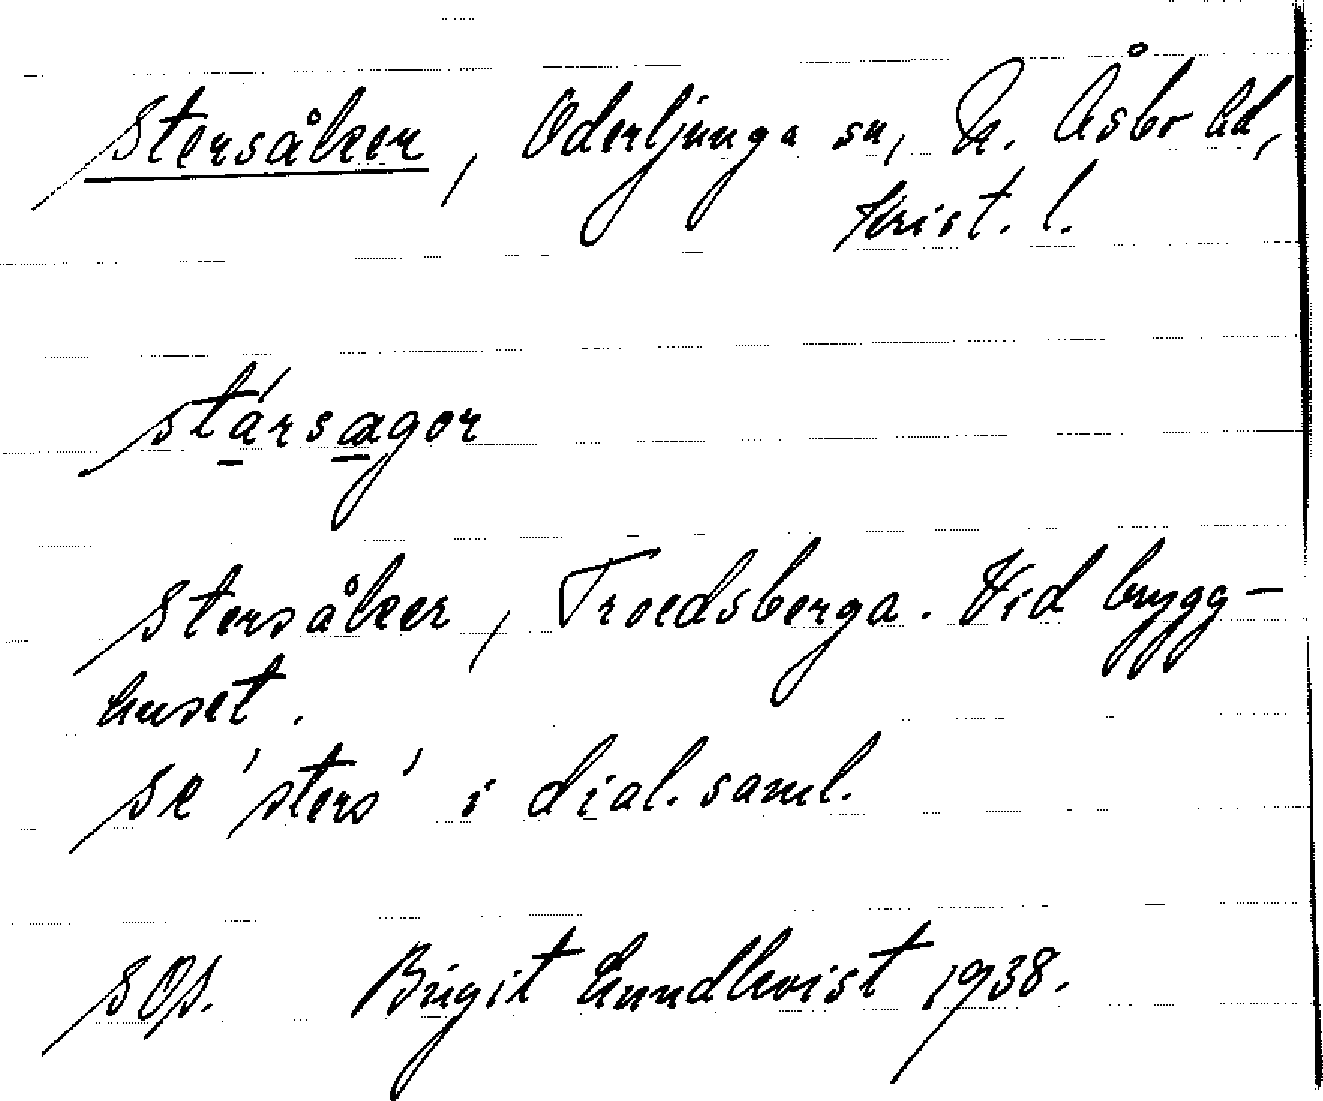 Stersåker, Oderljunga sn, N. Åsbo hd,
Krist. l.
stársagor
Stersåker, Troedsberga. Vid brygg-
huset.
Se 'sters' i dial. saml.
SOJ. Birgit Lundkvist 1938.